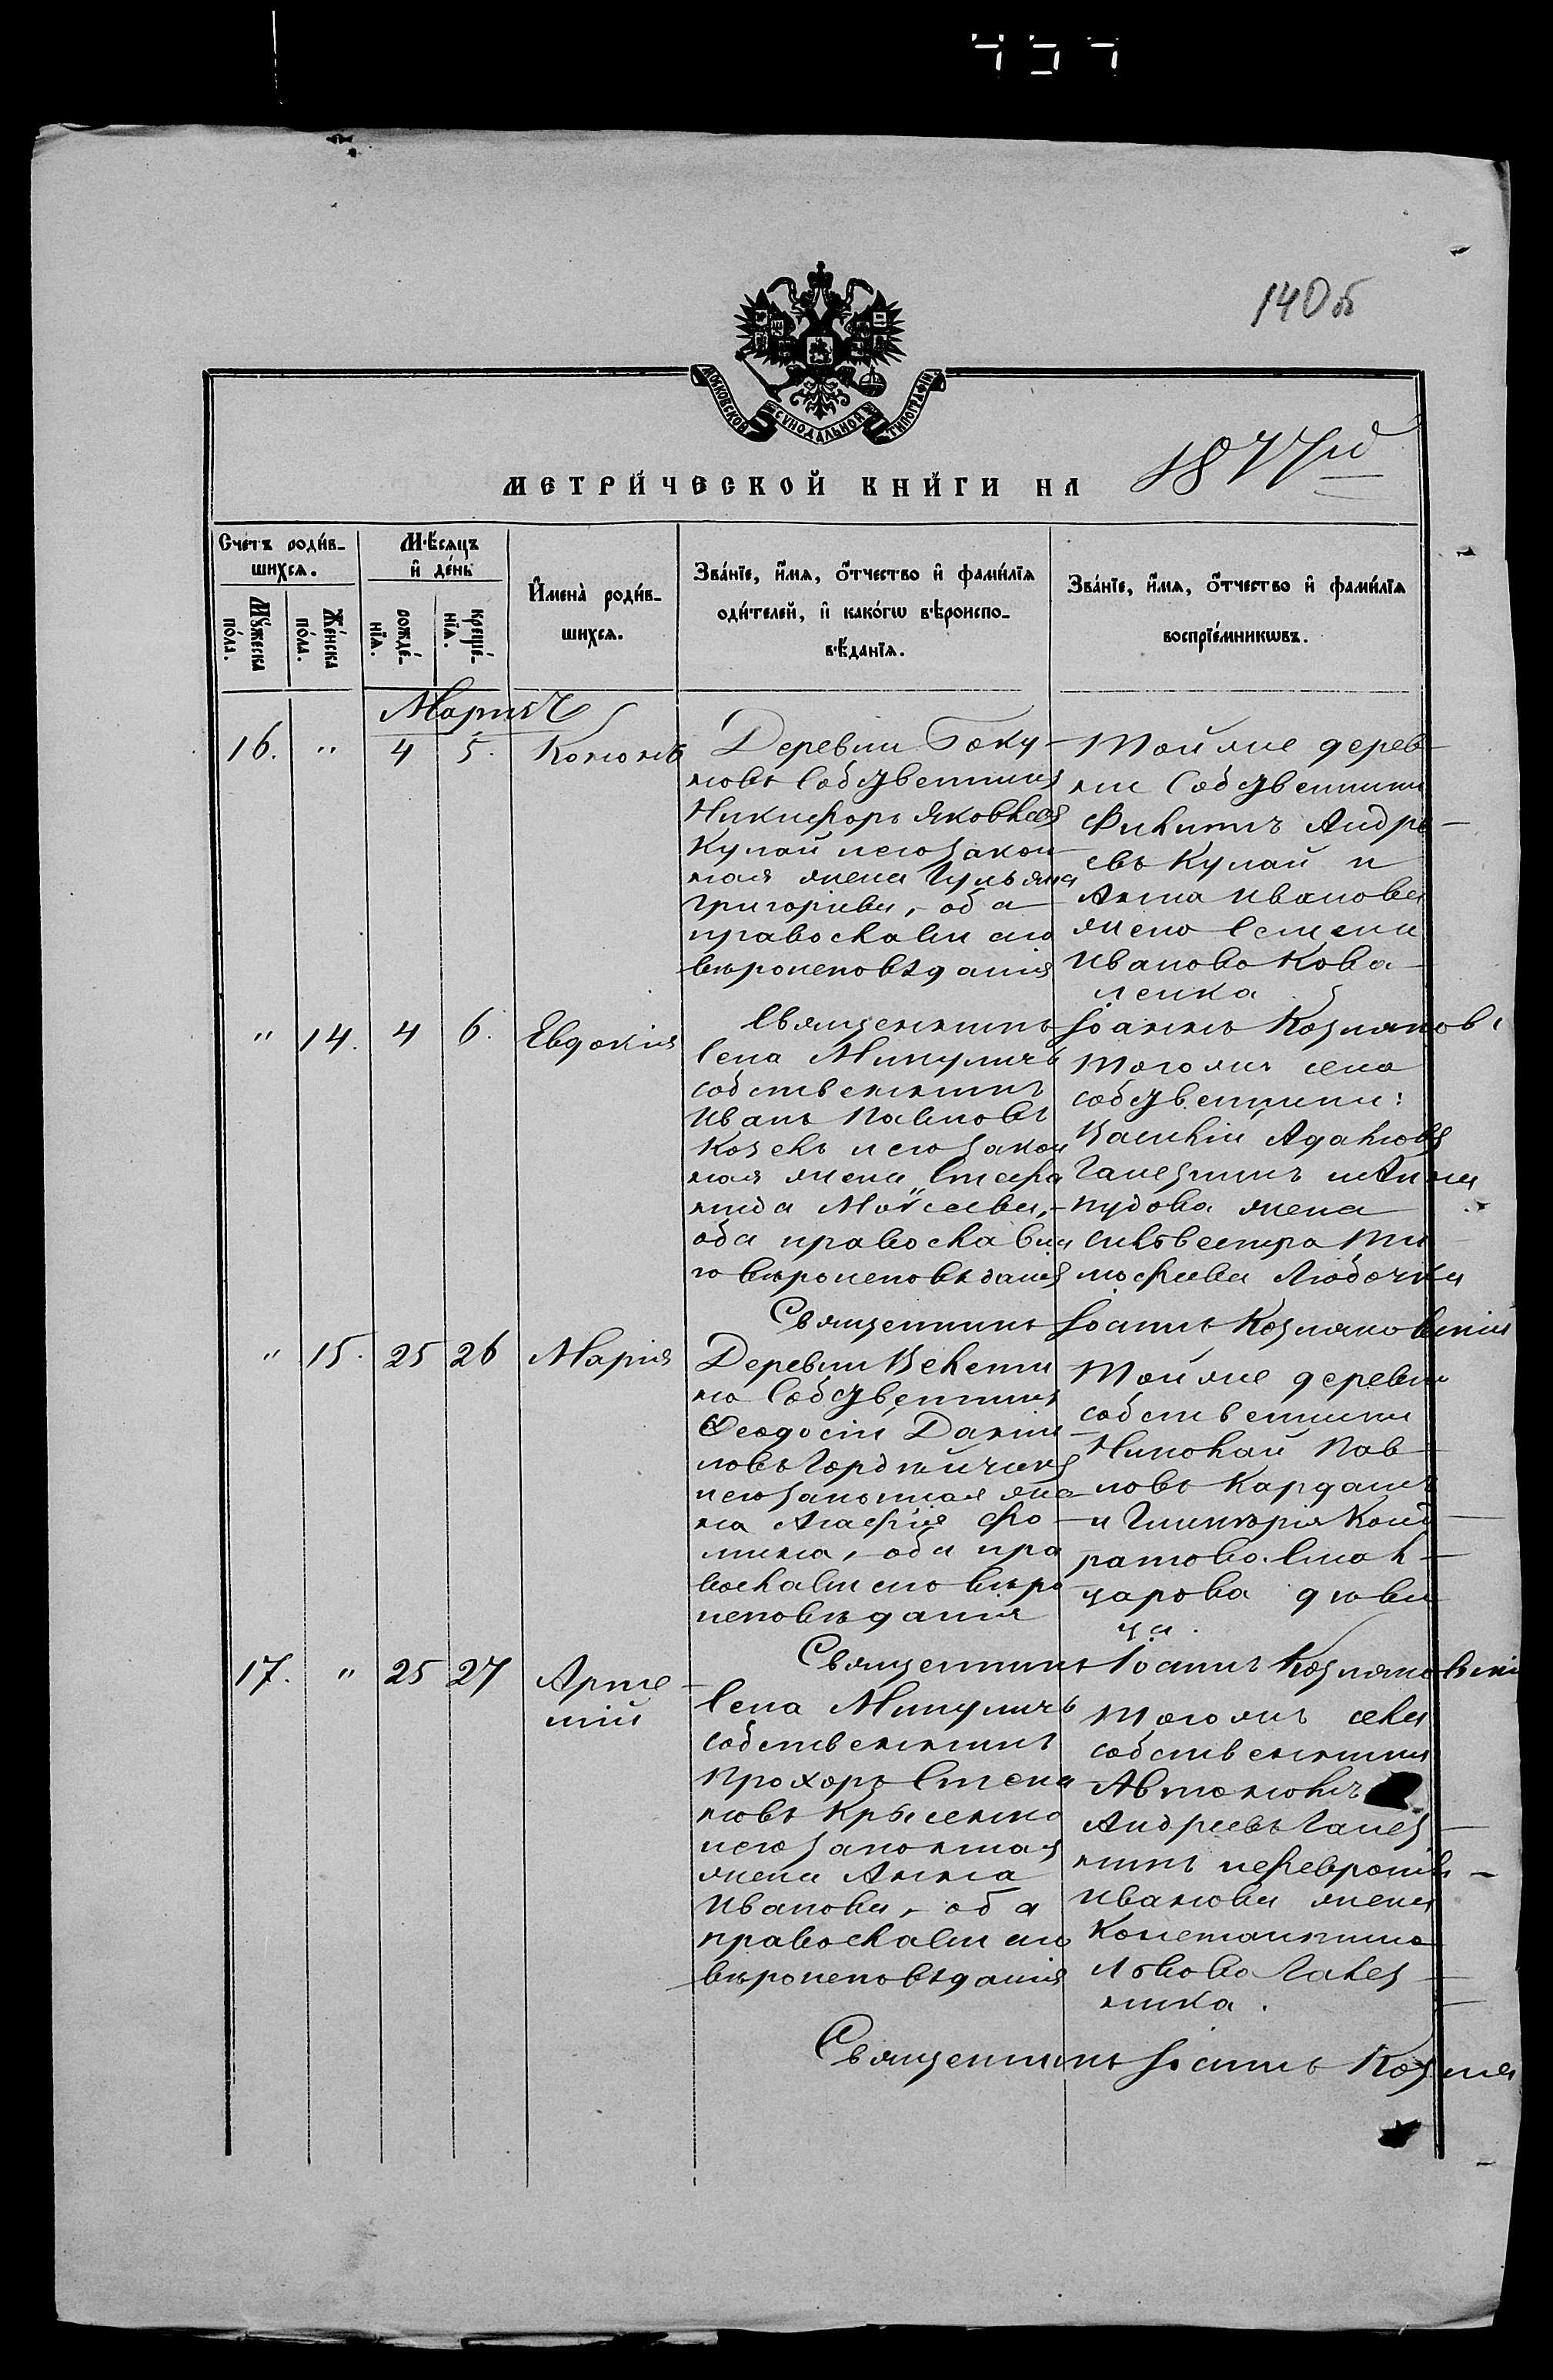 140об
МОСКОВСКОЙ СѴНОДАЛЬНОЙ ТИПОГРАФІИ
МЕТРИ́ЧЕСКОЙ КНИ́ГИ НА 1877й
Счетъ роди́в-
шихсѧ.
Мꙋ́жеска
по́ла.
Же́нска
по́ла.
Мѣ́сѧцъ
и҆ де́нь
рожде́-
нїѧ.
креще́-
нїѧ.
И҆мена̀ роди́в-
шихсѧ.
Зва́нїе, и҆́мѧ, ѻ҆́тчество и҆ фами́лїѧ
оди́телей, и҆ како́гѡ вѣроиспо-
вѣ́данїѧ.
Зва́нїе, и҆́мѧ, ѻ҆́тчество и҆ фами́лїѧ
воспрїе́мникѡвъ.
Мартъ
16. " 4 5. Кононъ
Деревни Боку-
мовъ Собственникъ
Никифоръ Яковлевъ
Кулай и его закон-
ная жена Ульяна
Григорьева, - оба
православнаго
вѣроисповѣданія
Той же дерев-
ни Собственники
Филиппъ Андре-
евъ Кулай и
Анна Иванова
жена
Иванова Кова-
ленка
" 14. 4 6. Евдокія
Священникъ Іоаннъ Козляков
Села Микуличъ
собственникъ
Иванъ Павловъ
и его закон
ная жена Степа
нида Моѵсеева, -
оба православна
го вѣроисповѣданія
Того же села
собственники:
Василій Адамовъ
Галезникъ и Анна
жена
Сильвестра Ти
мофеева
Священникъ Іоаннъ Козляковскій
" 15. 25 26 Марія
Деревни
Собственникъ
Ѳеодосій Данiи
ловъ Гордѣйчикъ
и его законная же
на Агафія Фо-
мина, - оба пра
вославнаго вѣро
исповѣданія
Той же деревни
собственники
Николай Пав-
ловъ Карданъ
и Гликерія Конд
ратова
дѣви
ца.
17. " 25 27 Арте-
мій
Священникъ Іоаннъ Козляковскі
Села Микуличъ
собственникъ
Прохоръ Степа
новъ
и его законная
жена Анна
Иванова, - оба
православнаго
вѣроисповѣданія
Того же села
собственники
Автономъ
Андреевъ Галез-
никъ и Февронія -
Иванова жена
Константина
Львова Галез-
ника.
Священникъ Іоаннъ Козля